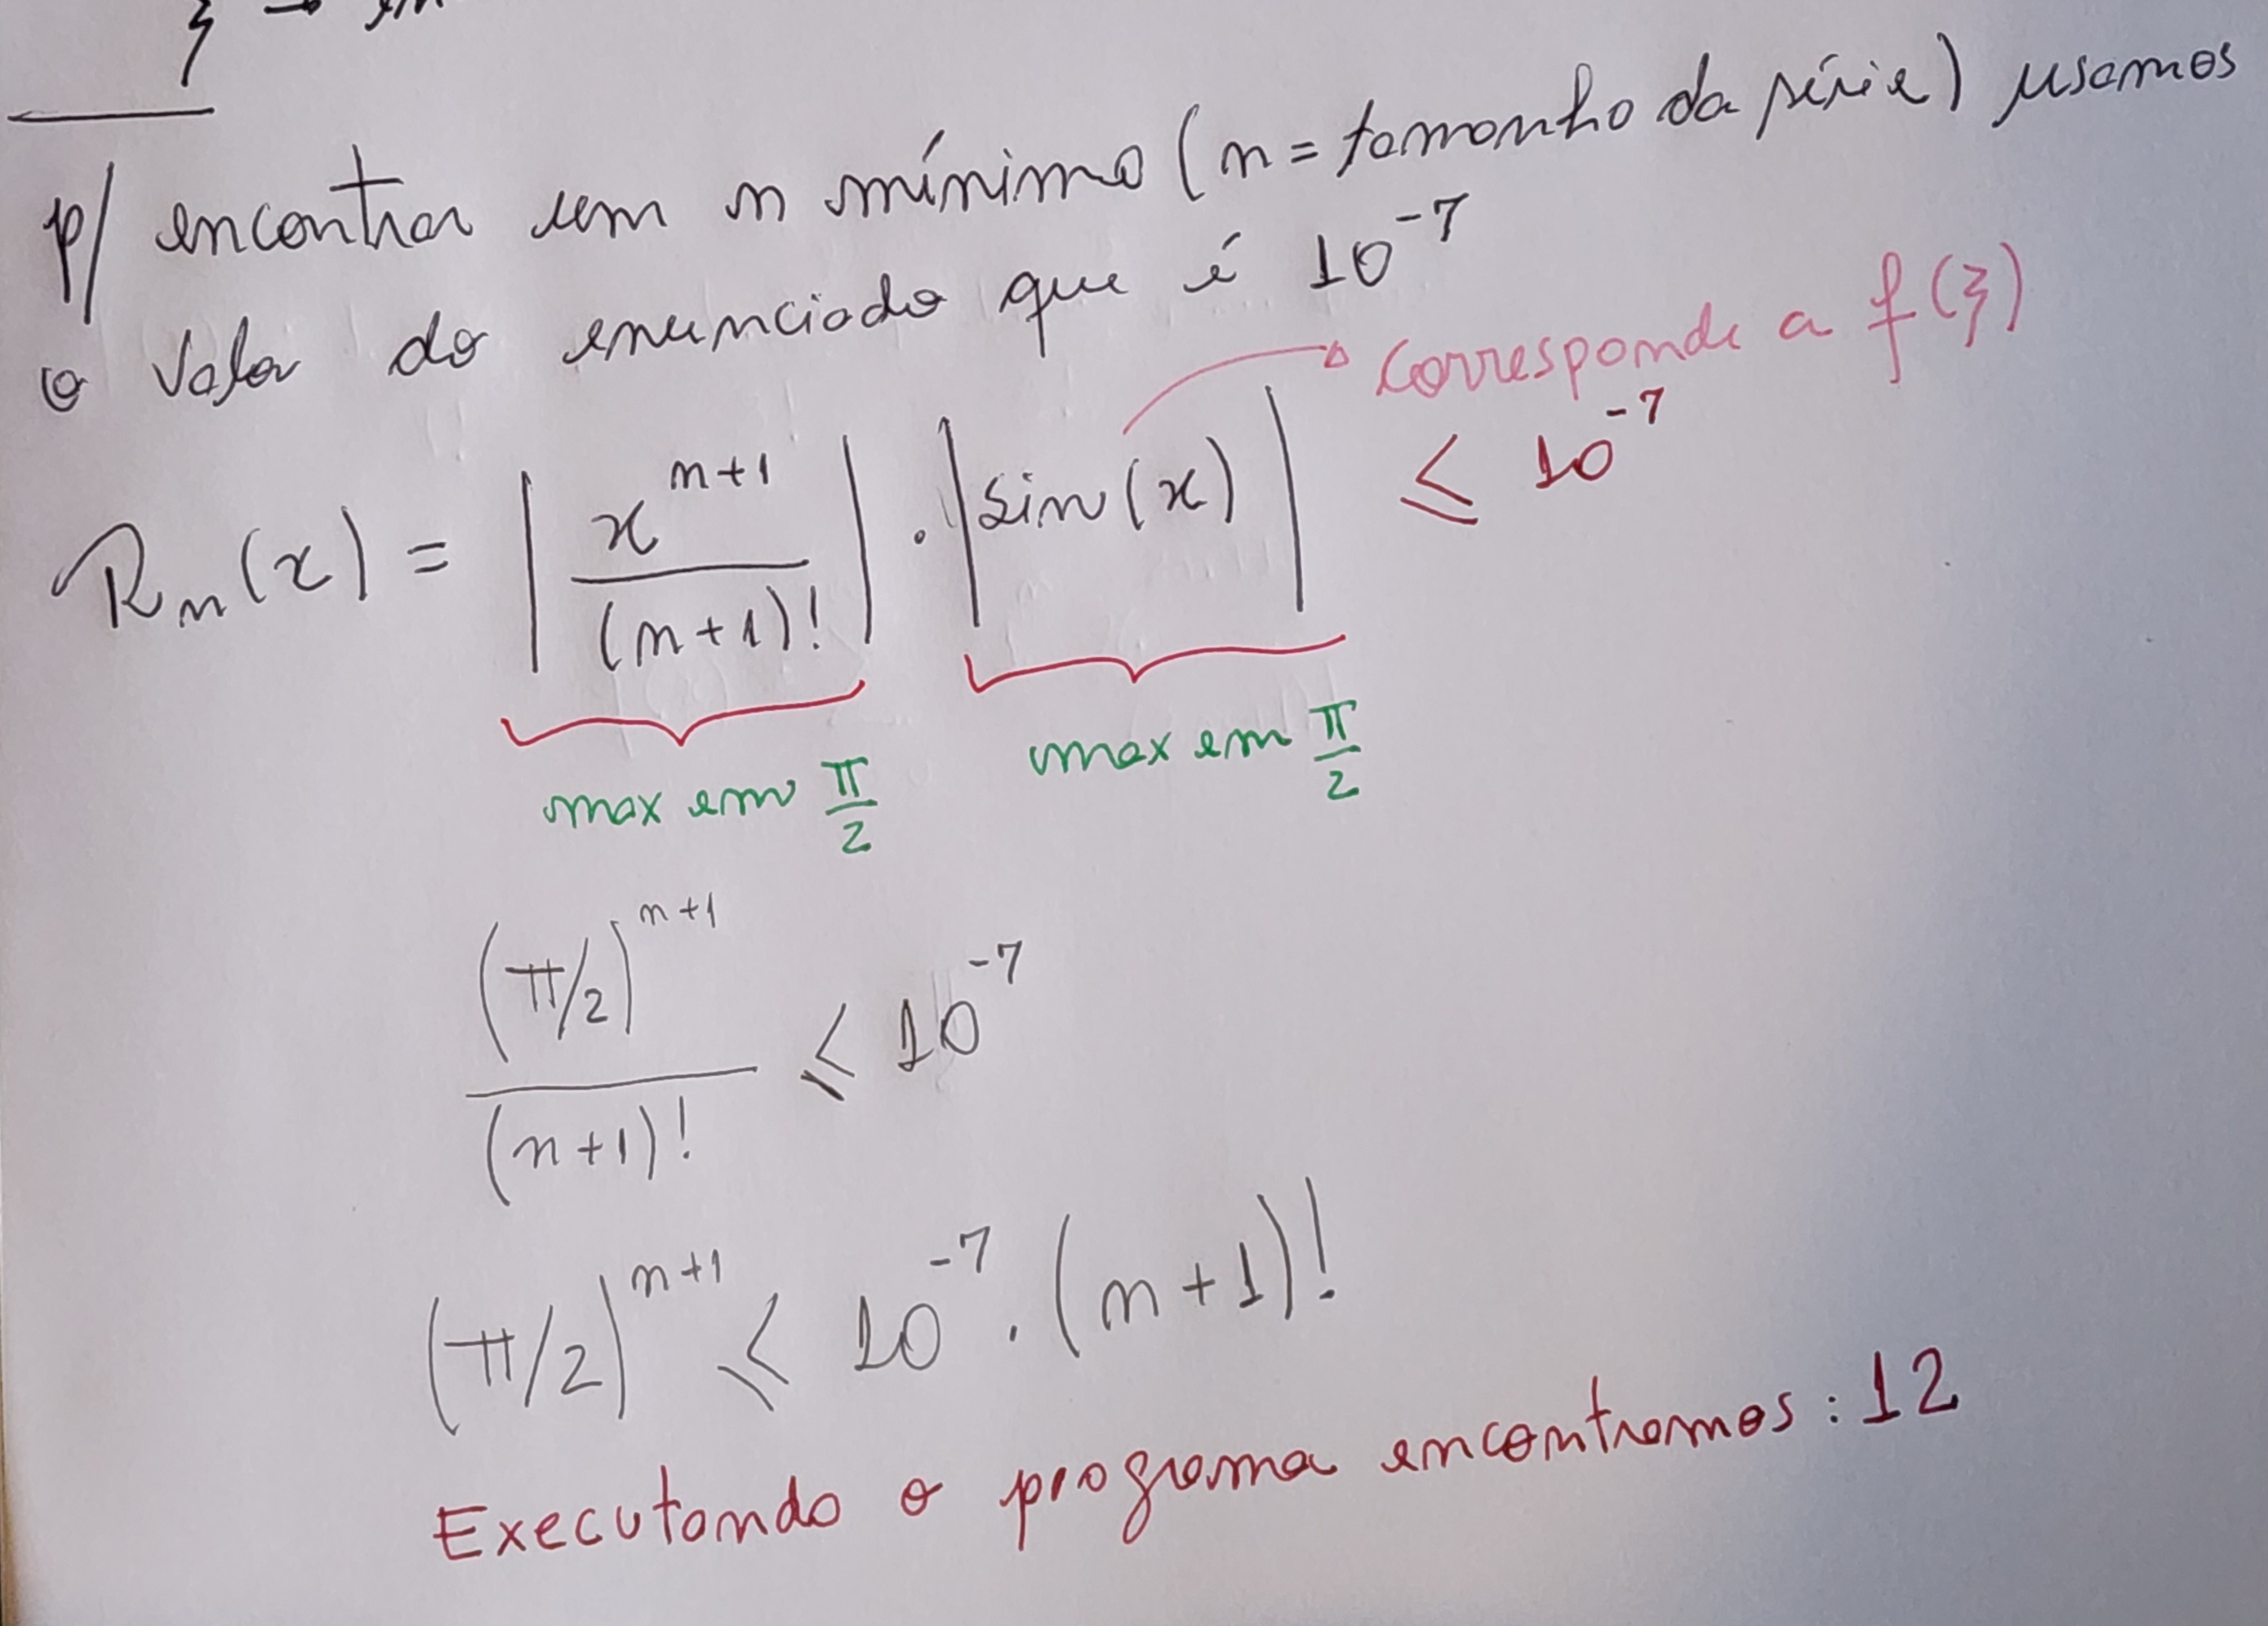 p/ encontrar um n mínimo (n = tamanho da série) usamos
o valor do enunciado que é 10^-7
corresponde a f(ξ)
R_n(x) = | x^(n+1) / (n+1)! | . | sin(x) | ≤ 10^-7
max em π/2 max em π/2
(π/2)^(n+1) / (n+1)! ≤ 10^-7
(π/2)^(n+1) ≤ 10^-7 . (n+1)!
Executando o programa encontramos: 12